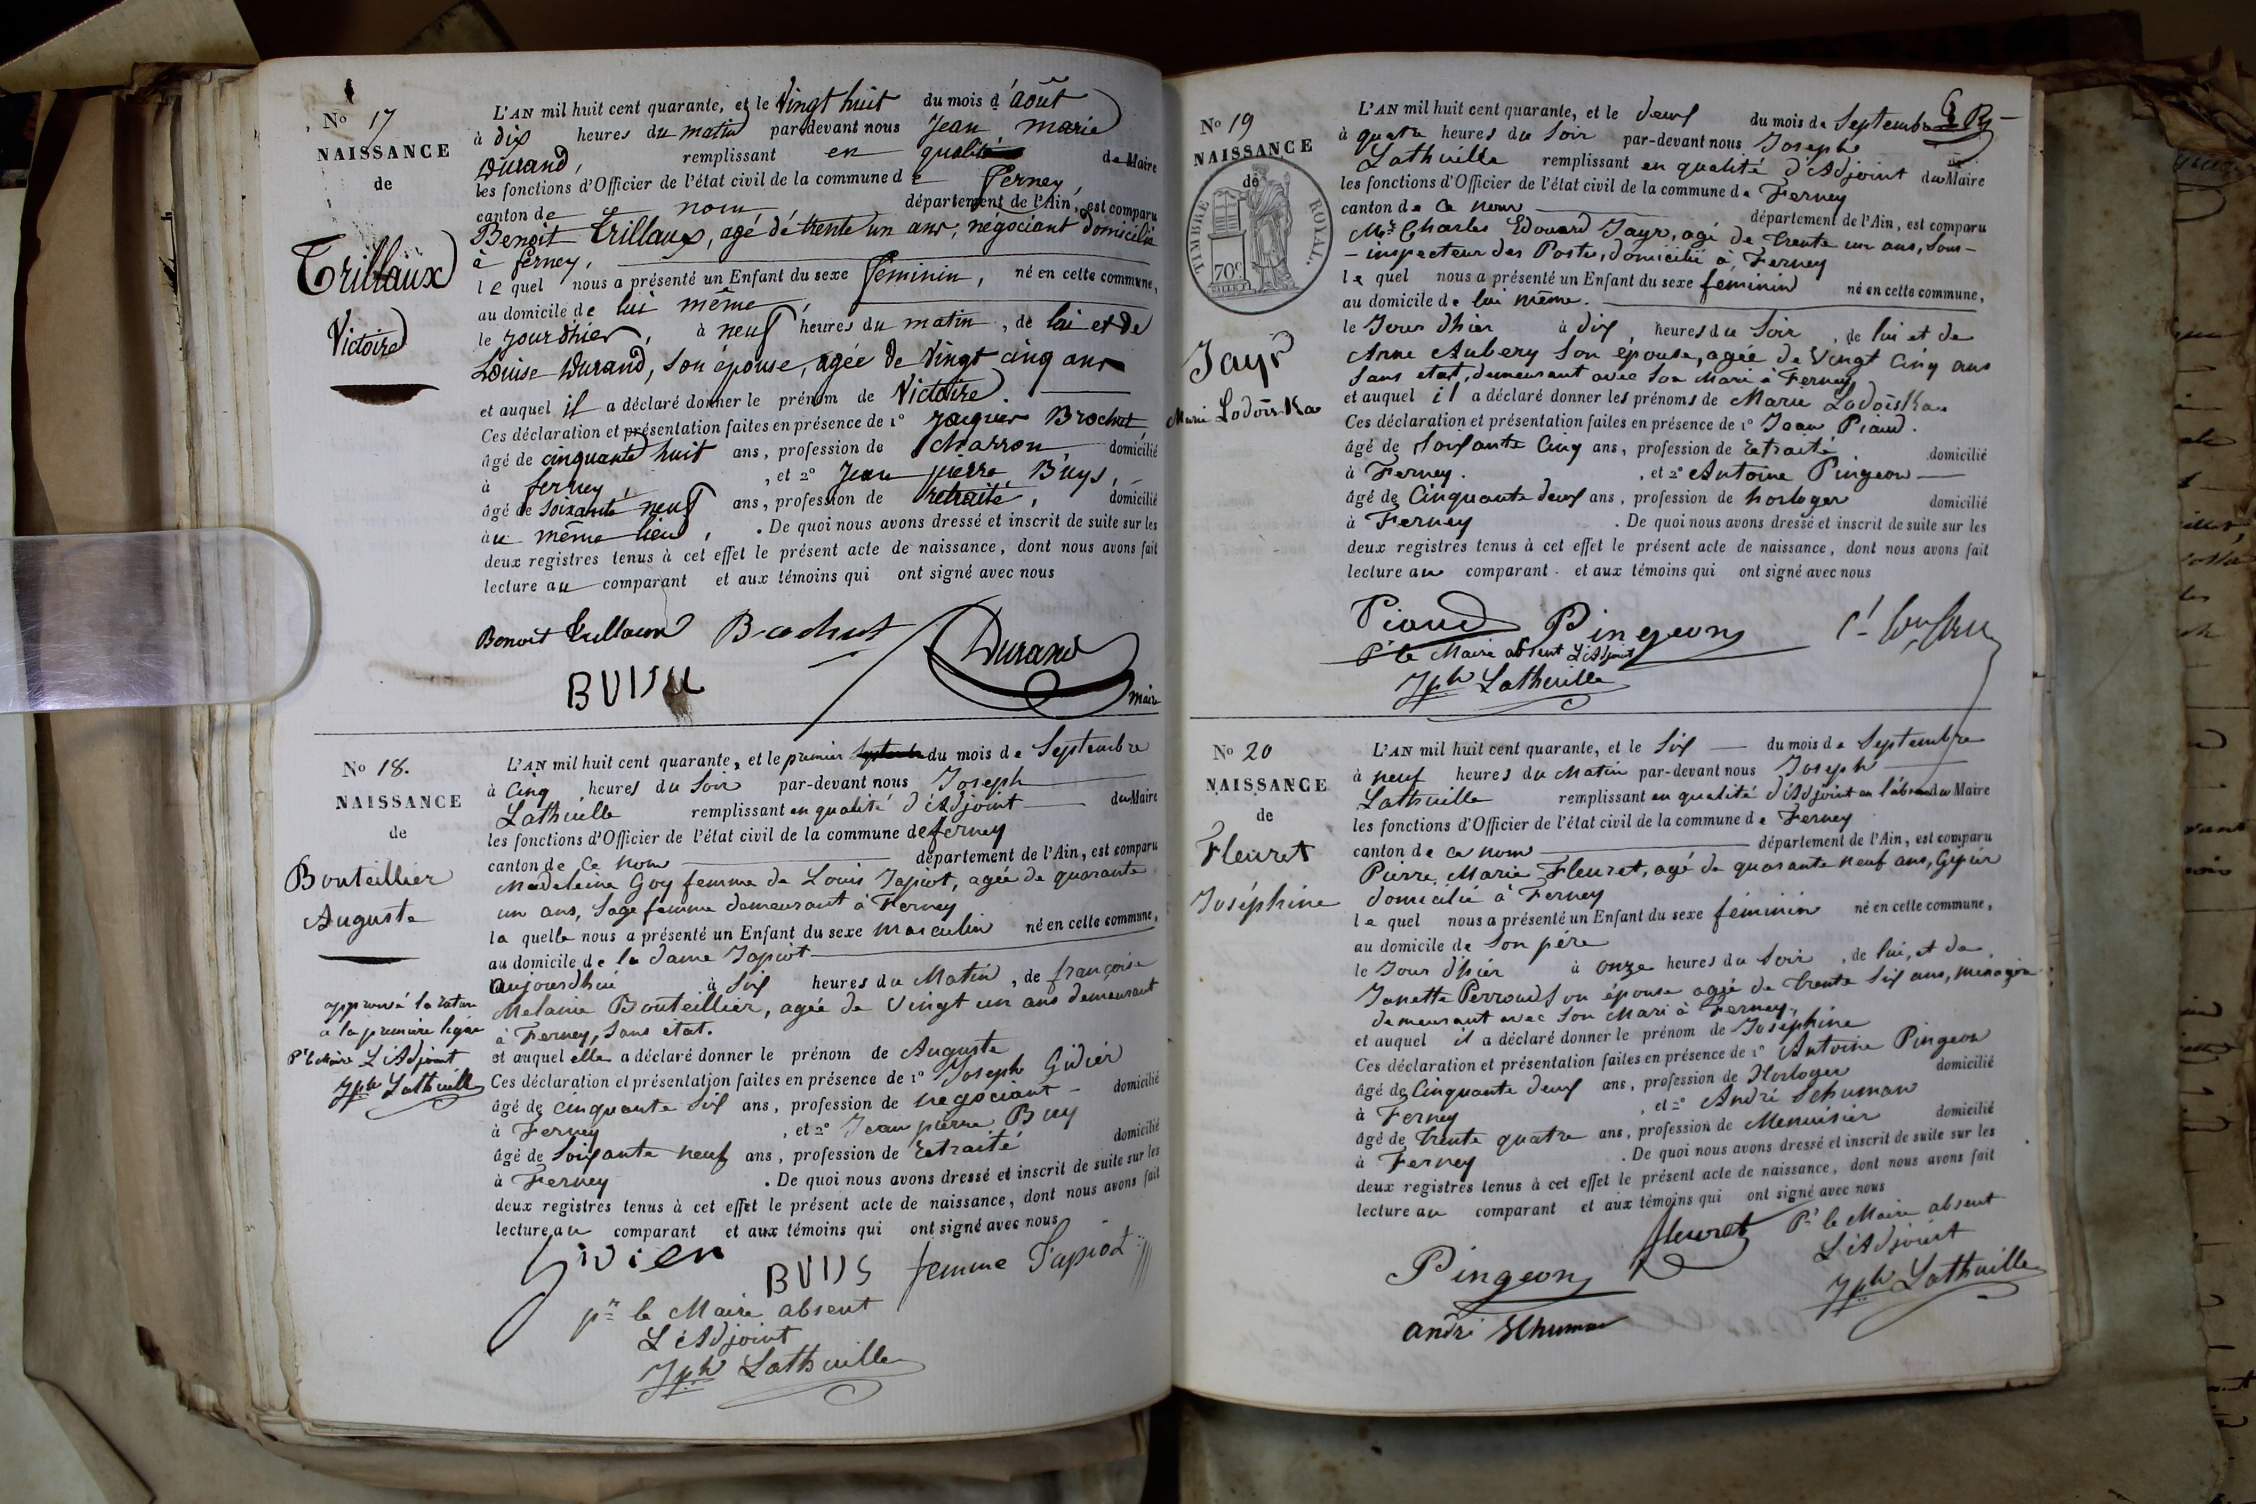 No 17
NAISSANCE
de
Trillaux
Victoire
L'AN mil huit cent quarante, et le Vingt huit du mois d'août
à dix heures du matin par-devant nous Jean Marie
Durand, remplissant en qualité de Maire
les fonctions d'Officier de l'état civil de la commune de Ferney,
canton de ce nom département de l'Ain, est comparu
Benoit Trillaux, agé de trente un ans, négociant domicilié
à ferney,
lequel nous a présenté un Enfant du sexe feminin, né en cette commune,
au domicile de lui même,
le jour d'hier, à neuf heures du matin, de lui et de
Louise Durand, son épouse, agée de Vingt cinq ans
et auquel il a déclaré donner le prénom de Victoire.
Ces déclaration et présentation faites en présence de 1° Jacques Brochut,
âgé de cinquante huit ans, profession de charron domicilié
à ferney, et 2° Jean pierre Buys,
âgé de soixante neuf ans, profession de retraité, domicilié
au même lieu, . De quoi nous avons dressé et inscrit de suite sur les
deux registres tenus à cet effet le présent acte de naissance, dont nous avons fait
lecture au comparant et aux témoins qui ont signé avec nous
Benoit Trillaux Brochut Durand
maire
No 18.
NAISSANCE
de
Bouteillier
Auguste
approuvé la rature
a la premiere ligne
Pr le Maire L'Adjoint
Jph Lathuille
L'AN mil huit cent quarante, et le premier septembre du mois de Septembre
à Cinq heures du Soir par-devant nous Joseph
Lathuille remplissant en qualité d'Adjoint du Maire
les fonctions d'Officier de l'état civil de la commune de ferney
canton de Ce nom département de l'Ain, est comparu
Madeleine Goy femme de Louis Japiot, agée de quarante
un ans, Sage femme demeurant à Ferney
laquelle nous a présenté un Enfant du sexe masculin né en cette commune,
au domicile de la dame Japiot
aujourdhui à Six heures du Matin, de françoise
Melanie Bouteillier, agée de Vingt un ans demeurant
à Ferney, Sans état.
et auquel elle a déclaré donner le prénom de Auguste
Ces déclaration et présentation faites en présence de 1° Joseph Gidier
âgé de cinquante Six ans, profession de negociant domicilié
à Ferney, et 2° Jean pierre Buy
âgé de Soixante neuf ans, profession de Retraité domicilié
à Ferney . De quoi nous avons dressé et inscrit de suite sur les
deux registres tenus à cet effet le présent acte de naissance, dont nous avons fait
lecture au comparant et aux témoins qui ont signé avec nous
BUIIS femme Japiot
pr le Maire absent
L'Adjoint
Jph Lathuille
No 19
NAISSANCE
de
TIMBRE ROYAL.
70c
Jayr
Marie Lodoïska
L'AN mil huit cent quarante, et le deux du mois de Septembre
à quatre heures du Soir par-devant nous Joseph
Lathuille remplissant en qualité d'Adjoint du Maire
les fonctions d'Officier de l'état civil de la commune de Ferney
canton de Ce nom département de l'Ain, est comparu
Mr Charles Edouard Jayr, agé de Trente un ans, Sous-
-inspecteur des Postes, domicilié à Ferney
lequel nous a présenté un Enfant du sexe féminin né en cette commune,
au domicile de lui même.
le Jour d'hier à dix heures du Soir, de lui et de
Anne Aubery Son épouse, agée de Vingt Cinq ans
Sans etat, demeurant avec Son Mari à Ferney
et auquel il a déclaré donner les prénoms de Marie Lodoïska
Ces déclaration et présentation faites en présence de 1° Jean Piaud.
âgé de Soixante Cinq ans, profession de retraité domicilié
à Ferney. , et 2° Antoine Pingeon
âgé de Cinquante deux ans, profession de horloger domicilié
à Ferney . De quoi nous avons dressé et inscrit de suite sur les
deux registres tenus à cet effet le présent acte de naissance, dont nous avons fait
lecture au comparant et aux témoins qui ont signé avec nous
Piaud Pingeon
Pr le Maire absent L'Adjoint
Jph Lathuille
No 20
NAISSANCE
de
Fleuret
Joséphine
L'AN mil huit cent quarante, et le Six du mois de Septembre
à neuf heures du Matin par-devant nous Joseph
Lathuille remplissant en qualité d'Adjoint en l'absence du Maire
les fonctions d'Officier de l'état civil de la commune de Ferney
canton de ce nom département de l'Ain, est comparu
Pierre Marie Fleuret, agé de quarante neuf ans, Gipier
domicilié à Ferney
lequel nous a présenté un Enfant du sexe féminin né en cette commune,
au domicile de Son père
le Jour d'hier à onze heures du Soir, de lui, et de
Janette Perroud Son épouse agée de Trente Six ans, menagère
demeurant avec Son Mari à Ferney,
et auquel il a déclaré donner le prénom de Joséphine
Ces déclaration et présentation faites en présence de 1° Antoine Pingeon
âgé de Cinquante deux ans, profession de Horloger domicilié
à Ferney, et 2° André Schuman
âgé de Trente quatre ans, profession de Menuisier domicilié
à Ferney . De quoi nous avons dressé et inscrit de suite sur les
deux registres tenus à cet effet le présent acte de naissance, dont nous avons fait
lecture au comparant et aux témoins qui ont signé avec nous
fleuret Pr le Maire absent
L'Adjoint
Pingeon Jph Lathuille
andré schuman